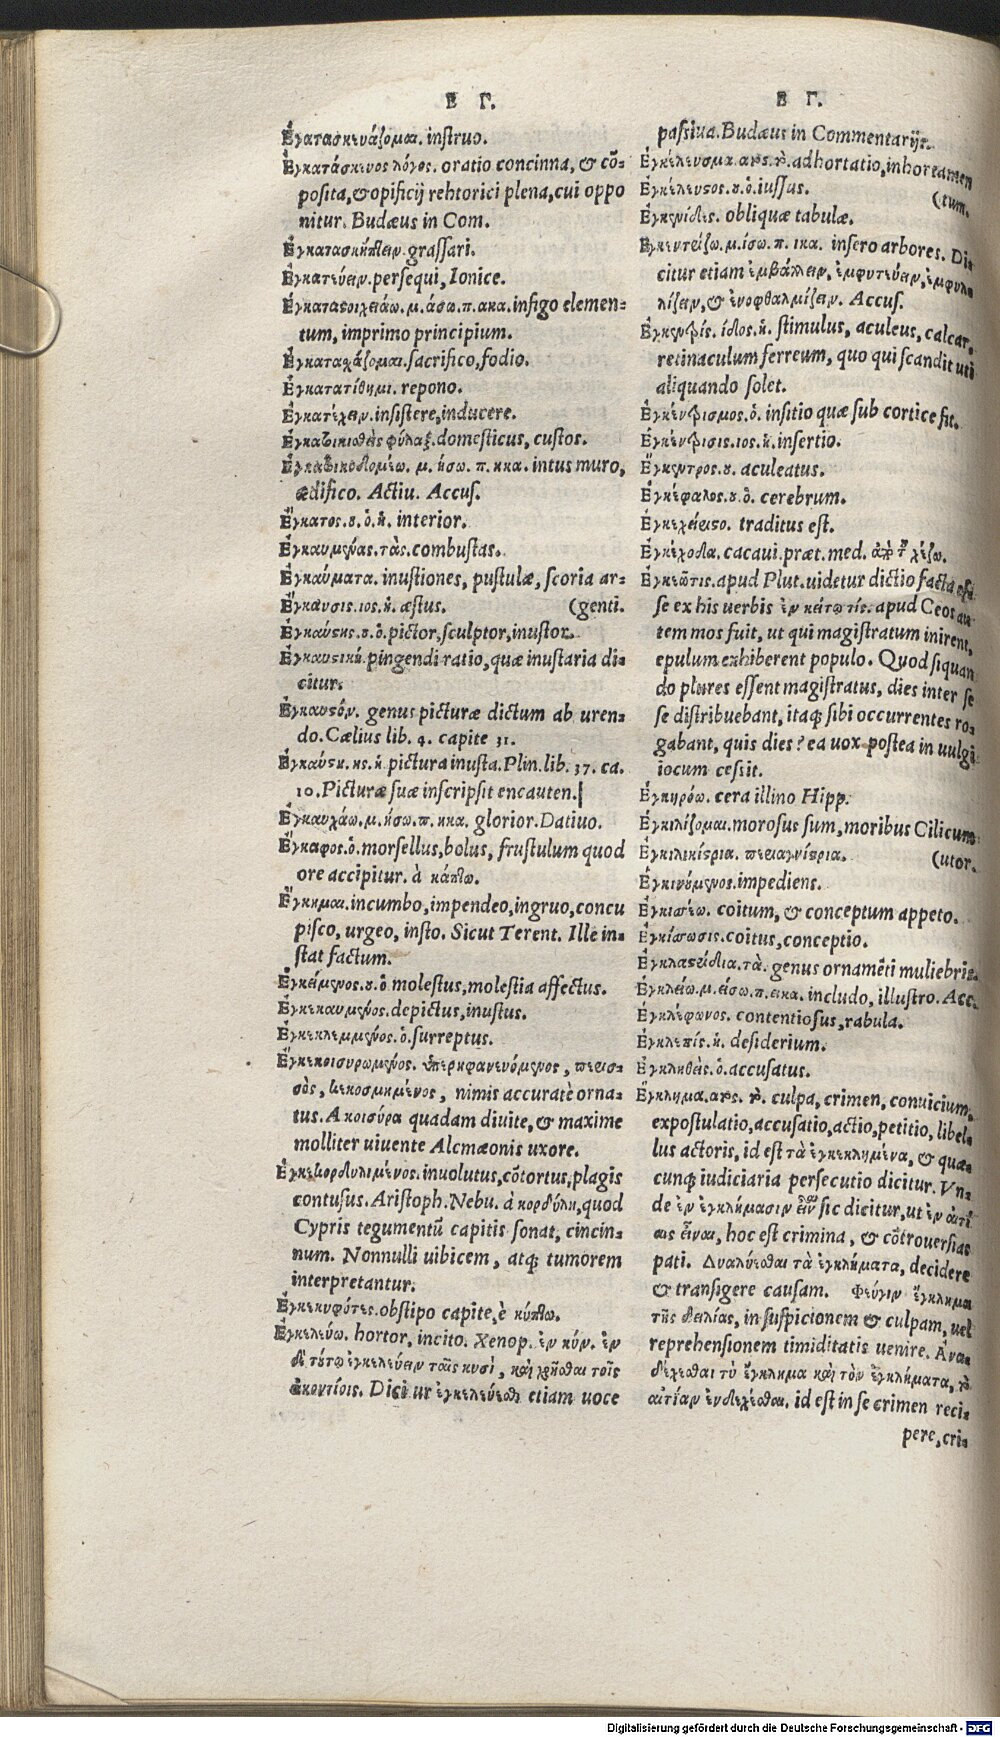 Ε Γ.
Ἐγατασκευάζομαι. instruo.
Ἐγκατάσκευος λόγος. oratio concinna, & cō-
posita, & opificij rehtorici plena, cui oppo
nitur. Budæus in Com.
Ἐγκατασκήπτειν. grassari.
Ἐγκατεύειν. persequi, Ionice.
Ἐγκαταστοιχειάω. μ. άσω. π. ακα. infigo elemen-
tum, imprimo principium.
Ἐγκατασφάζομαι. sacrifico, fodio.
Ἐγκατατίθημι. repono.
Ἐγκατέχειν. insistere, inducere.
φύλαξ. domesticus, custos.
μ. ήσω. π. ηκα. intus muro,
ædifico. Actiu. Accus.
Ἔγκατος. ου. ὁ. ἡ. interior.
Ἐγκαυμένας. τὰς. combustas.
Ἐγκαύματα. inustiones, pustulæ, scoria ar-
Ἔγκαυσις. ιος. ἡ. æstus. (genti.
Ἐγκαύστης. ου. ὁ. pictor, sculptor, inustor.
Ἐγκαυστική. pingendi ratio, quæ inustaria di-
citur.
Ἐγκαυστόν. genus picturæ dictum ab uren-
do. Cælius lib. 4. capite 31.
Ἐγκαύστη. ης. ἡ. pictura inusta. Plin. lib. 37. ca.
10. Picturæ suæ inscripsit encauten.
Ἐγκαυχάω. μ. ήσω. π. ηκα. glorior. Datiuo.
Ἔγκαφος. ὁ. morsellus, bolus, frustulum quod
ore accipitur. à κάπτω.
Ἔγκημαι. incumbo, impendeo, ingruo, concu
pisco, urgeo, insto. Sicut Terent. Ille in-
stat factum.
Ἐγκείμενος. ου. ὁ. molestus, molestia affectus.
Ἐγκεκαυμένος. depictus, inustus.
Ἐγκεκλεμμένος. ὁ. surreptus.
Ἐγκεκοισυρωμένος. ὑπερηφανευόμενος, περισ-
σὸς, κεκοσμημένος, nimis accuratè orna-
tus. A κοισύρα quadam diuite, & maxime
molliter uiuente Alcmæonis uxore.
Ἐγκεκορδυλιμένος. inuolutus, cōtortus, plagis
contusus. Aristoph. Nebu. à κορδύλη, quod
Cypris tegumentū capitis sonat, cincin-
num. Nonnulli uibicem, atq́ tumorem
interpretantur.
Ἐγκεκυφότες. obstipo capite, è κύπτω.
Ἐγκελεύω. hortor, incito. Xenop. ἐν κύν. ἐν
δὲ τούτῳ ἐγκελεύειν ταῖς κυσὶ, καὶ χρῆσθαι τοῖς
ἀκοντίοις. Dicitur ἐγκελεύεσθαι etiam uoce
Ε Γ.
passiua. Budæus in Commentarijs.
Ἐγκέλευσμα. ατος. τὸ. adhortatio, inhortamen
Ἐγκέλευστος. ου. ὁ. iussus. (tum.
Ἐγκενίδες. obliquæ tabulæ.
Ἐγκεντρίζω. μ. ίσω. π. ικα. insero arbores. Di-
citur etiam ἐμβάλλειν, ἐμφυτεύειν, ἐμφυλ-
λίζειν, & ἐνοφθαλμίζειν. Accus.
Ἐγκεντρίς. ίδος. ἡ. stimulus, aculeus, calcar,
retinaculum ferreum, quo qui scandit uti
aliquando solet.
Ἐγκεντρισμος. ὁ. insitio quæ sub cortice fit.
Ἐγκέντρισις. ιος. ἡ. insertio.
Ἔγκεντρος. ου. aculeatus.
Ἐγκέφαλος. ου. ὁ. cerebrum.
Ἐγκεχείριστο. traditus est.
Ἐγκέχοδα. cacaui. præt. med. ἀπὸ τοῦ χέζω.
Ἐγκεῶτις. apud Plut. uidetur dictio facta es-
se ex his uerbis ἐν κείτωτίς. apud Ceos au
tem mos fuit, ut qui magistratum inirent,
epulum exhiberent populo. Quod siquan
do plures essent magistratus, dies inter se
se distribuebant, itaq́ sibi occurrentes ro-
gabant, quis dies? ea uox postea in uulgi
iocum cessit.
Ἐγκηρόω. cera illino Hipp.
Ἐγκιλίζομαι. morosus sum, moribus Cilicum
Ἐγκιλικίστρια. περιαγνίστρια. (utor.
Ἐγκινούμενος. impediens.
Ἐγκισσέω. coitum, & conceptum appeto.
Ἐγκίσσωσις. coitus, conceptio.
Ἐγκλαστρίδια. τὰ. genus ornamēti muliebris.
Ἐγκλείω. μ. είσω. π. εικα. includo, illustro. Acc.
Ἐγκλέφωνος. contentiosus, rabula.
Ἐγκλεπίς. ἡ. desiderium.
Ἐγκληθεὶς. ὁ. accusatus.
Ἔγκλημα. ατος. τὸ. culpa, crimen, conuicium,
expostulatio, accusatio, actio, petitio, libel-
lus actoris, id est τὰ ἐγκεκλημένα, & quæ-
cunq́ iudiciaria persecutio dicitur. Vn-
de ἐν ἐγκλήμασιν εἶναι sic dicitur, ut ἐν αἰτί
αις εἶναι, hoc est crimina, & cōtrouersias
pati. Διαλύεσθαι τὰ ἐγκλήματα, decidere
& transigere causam. Φεύγιν ἔγκλημα
τῆς δειλίας, in suspicionem & culpam, uel
reprehensionem timiditatis uenire. Ἀνα-
δέχεσθαι τὸ ἔγκλημα καὶ τὸν ἐγκλήματα, τὸ
αἰτίαν ἐνδέχεσθαι. id est in se crimen reci-
pere, cri-
Digitalisierung gefördert durch die Deutsche Forschungsgemeinschaft - DFG